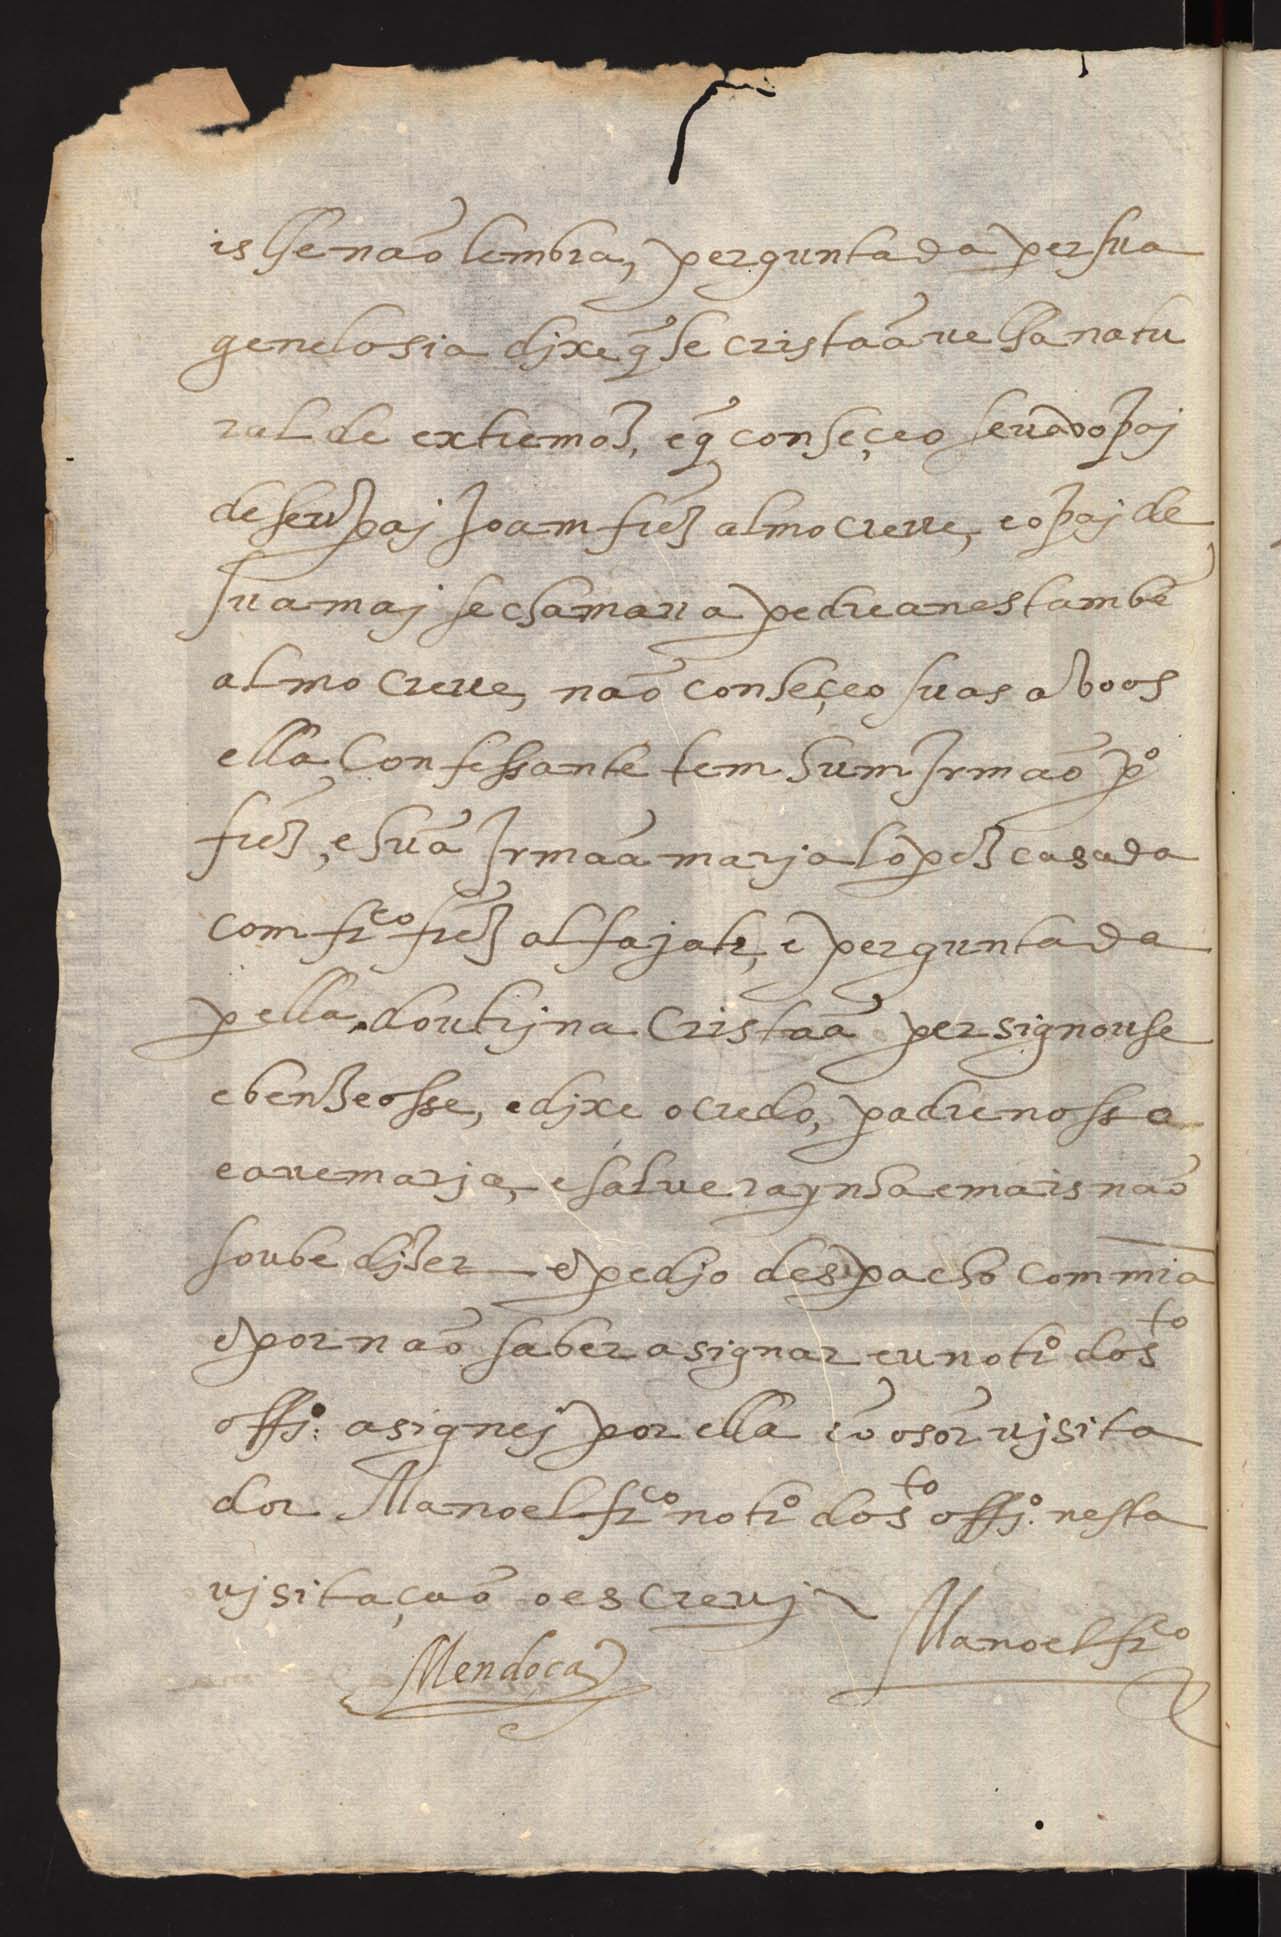 is lhe não lembra, perguntada per sua
genelosia dixe q̃ he cristaã velha natu
ral de extremoz, e q̃ conheçeo seu avo paj
de seu paj Joam frẽz almocreve, e o paj de
sua maj se chamava pedreanes tambẽ
almocreve, não conheçeo suas avoos
ella Confessante tem hum Irmão p.º
frẽz, e hũa Irmaã marja lopez casada
com fr.co frẽz alfajate, e perguntada
pella doutrjna Cristaã persignouse
e benzeosse, e djxe o credo, padre nosso
e ave marja, e salve raynha e mais não
soube djzer e pedjo despacho com mia
e por não saber asignar eu not.º do s.to
offj.º asignej por ella cõ o sõr vjsita
dor Manoel fr.co not.º do s.to offj.º nesta
vjsitação o escrevj
Mendoça Manoel fr.co